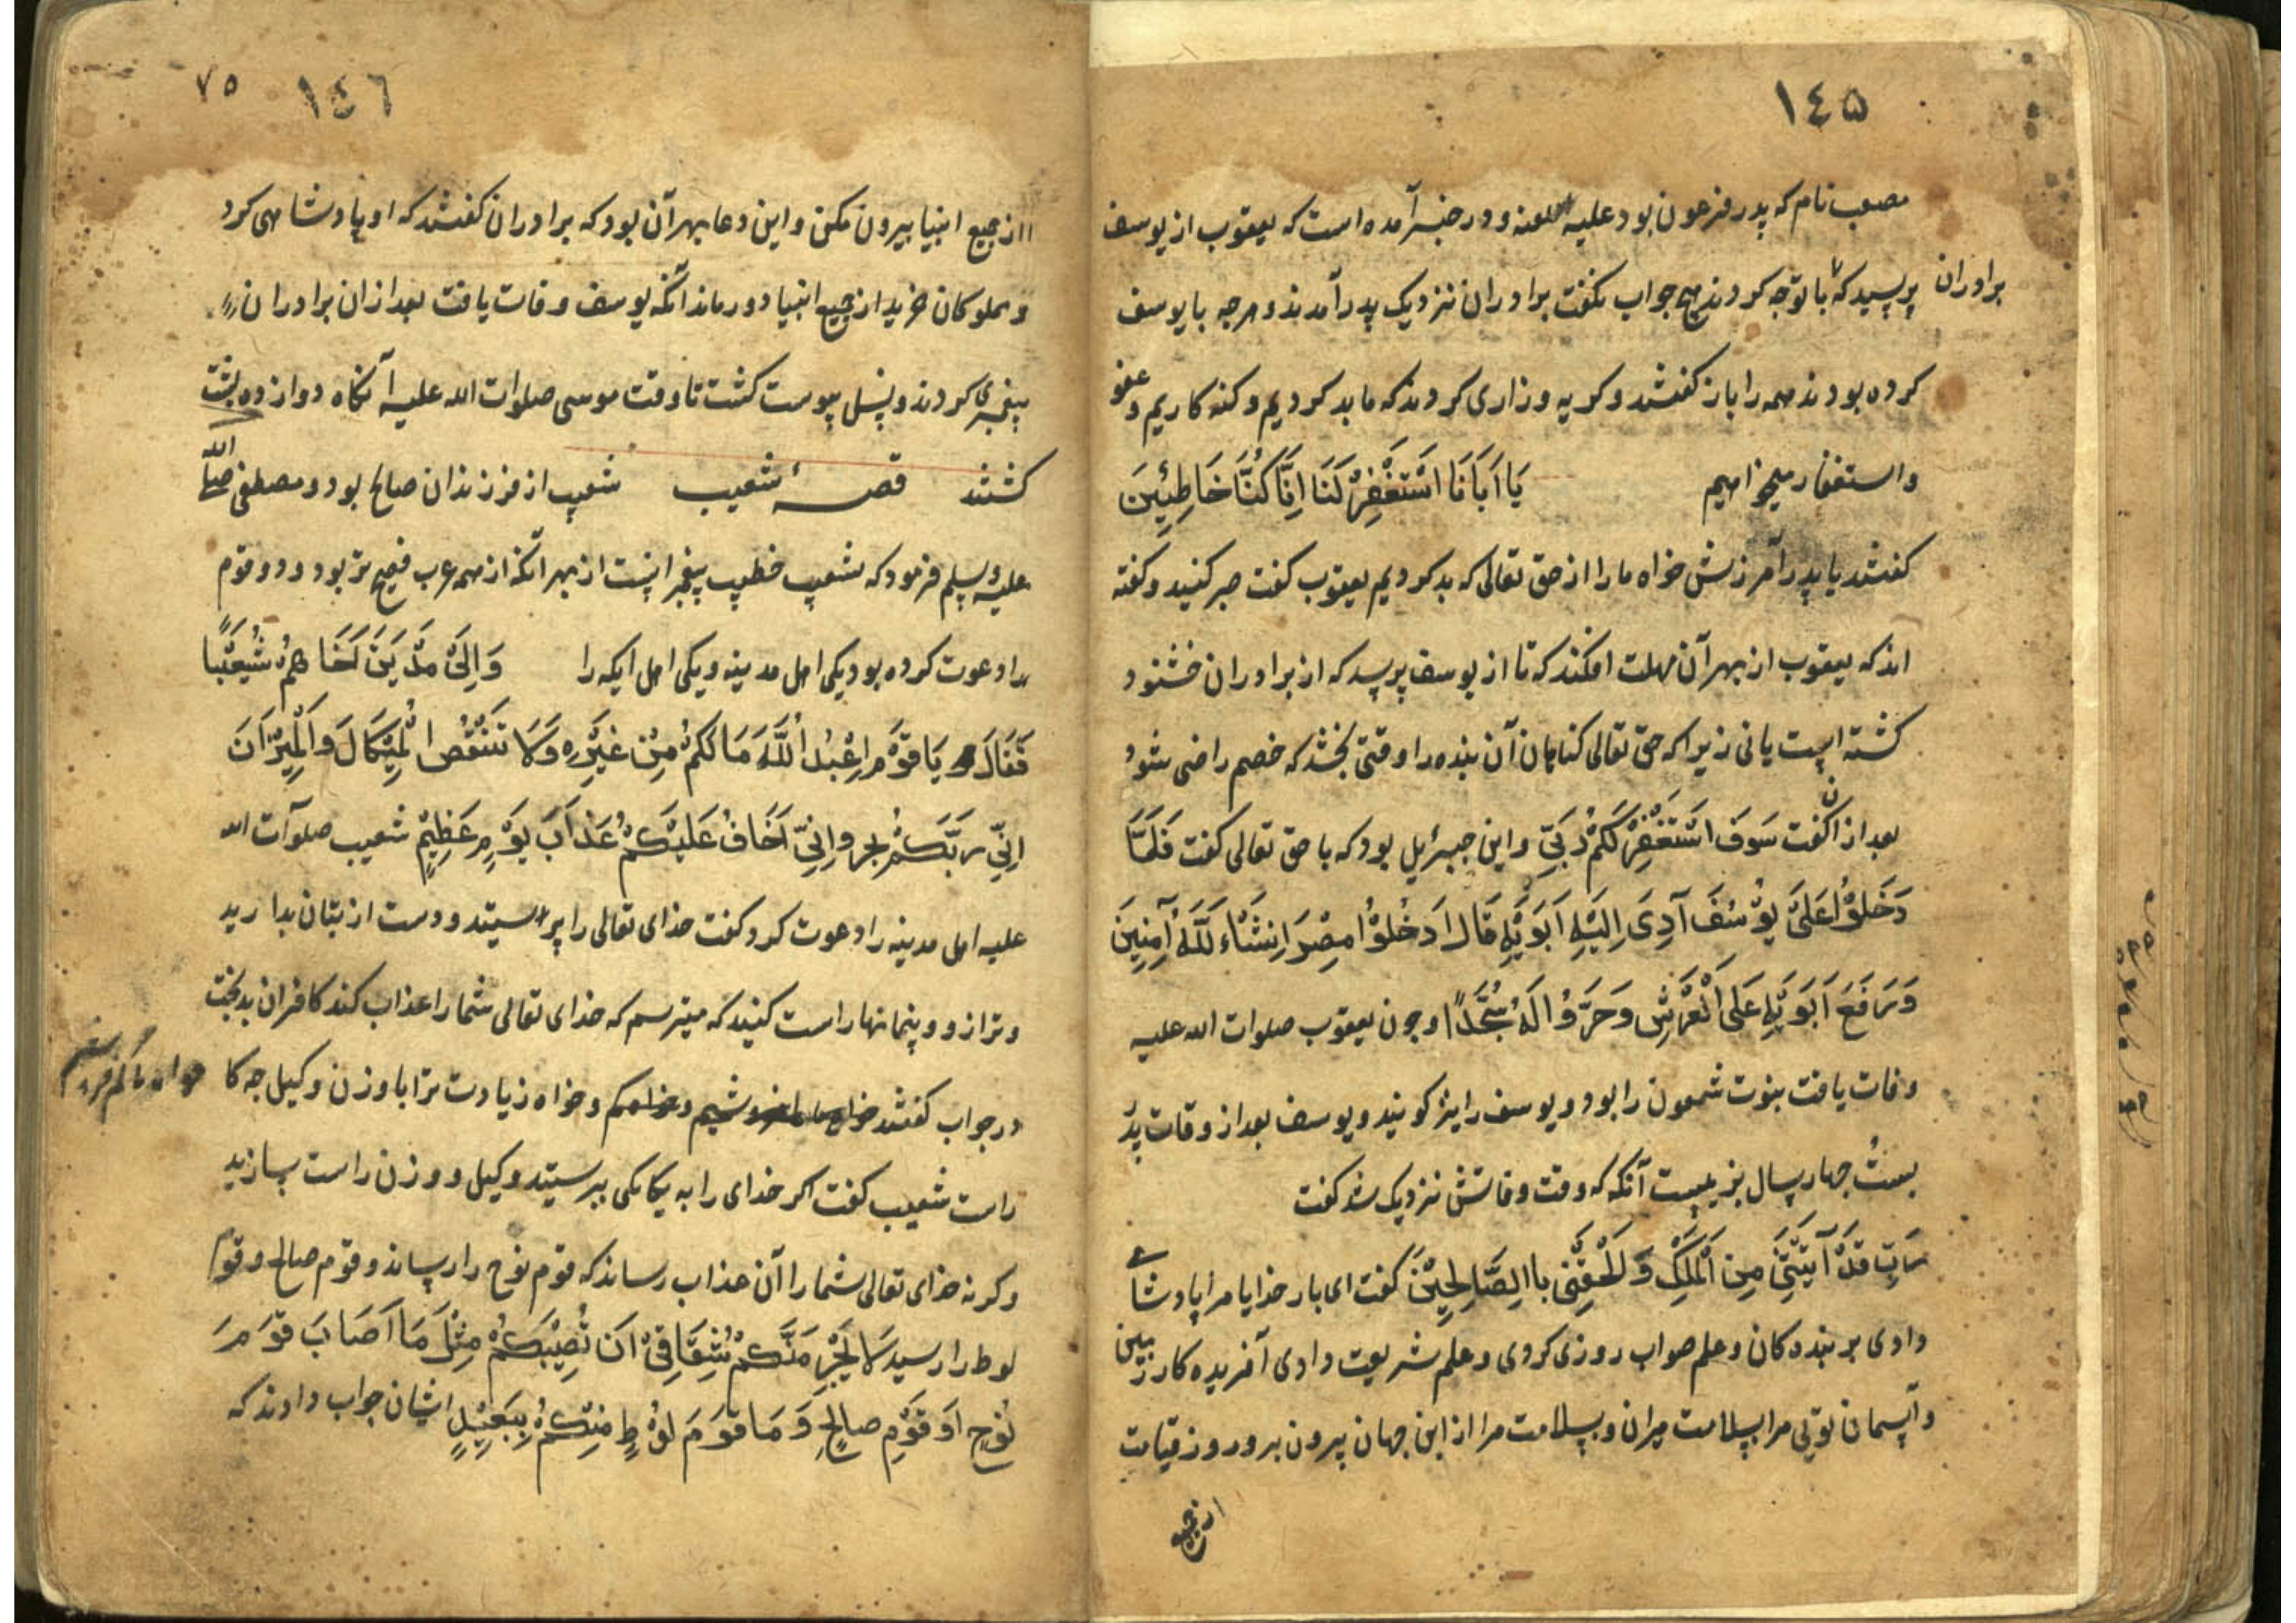 ١٤٥
مصعب نام که پدر فرعون بود علیه اللعنه و در خبر آمده است که یعقوب از یوسف
برادران پرسید که با تو چه کردند هیچ جواب نکفت برادران نزدیک پدر آمدند و هرچه با یوسف
کرده بودند همه را باز کفتند و کریه و زاری کردند که ما بد کردیم و کنه کاریم و عفو
واستغفار میخواهیم یَا اَبَانَا اسْتَغْفِرْ لَنَا اِنَّا کُنَّا خَاطِئِینَ
کفتند یا پدر آمرزش خواه ما را از حق تعالی که بد کردیم یعقوب کفت صبر کنید و کفته
اند که یعقوب از بهر آن مهلت افکند که تا از یوسف پرسد که از برادران خشنود
کشته است یا نی زیرا که حق تعالی کناهان آن بنده را وقتی بخشد که خصم راضی شود
بعد از ان کفت سَوفَ اَسْتَغْفِرُ لَکُمْ رَبّی و این جبرئیل بود که با حق تعالی کفت فَلَمَّا
دَخَلُوْا عَلیَ یُوْسُفَ آدِیَ اِلَیْهِ اَبَوَیْهِ قَالَ ادْخُلُوْا مِصْرَ اِنشَاءَ لَلّهُ آمِنِینَ
وَرَفَعَ اَبَوَیْهِ عَلَی الْعَرْشِ وَخَرَّوُا لَهُ سُجَّدًا و چون یعقوب صلوات الله علیه
وفات یافت بنوت شمعون را بود و یوسف را نیز کویند و یوسف بعد از وفات پدر
بیست چهار سال بزیست آنکه که وقت وفاتش نزدیک شد کفت
رَبِّ قَدْ آتَیْتَنِی مِنَ الْمُلْکِ وَ اَلْحِقْنِی باالِصَّالِحِیْنَ کفت ای بار خدایا مرا پادشاهی
دادی بر بنده کان و علم صواب روزی کردی و علم شریعت دادی آفریده کار زمین
و آسمان تویی مرا بسلامت میران و بسلامت مرا از این جهان بیرون بر و روز قیامت
از جمیع
١٤٦ ٧٥
از جمیع انبیا بیرون مکن و این دعا بهر آن بود که برادران کفتند که او پادشاهی کرد
و مملوکان خرید از جمیع انبیا دور ماند آنکه یوسف وفات یافت بعد از ان برادران
پیغمبری کردند و نسل پیوست کشت تا وقت موسی صلوات الله علیه آنکاه دوازده بشت
کشتند قصهٔ شعیب شعیب از فرزندان صالح بود و مصطفی صلی الله
علیه وسلم فرمود که شعیب خطیب پیغمبرانست از بهر آنکه از همه عرب فصیح تر بود و دو قوم
را دعوت کرده بود یکی اهل مدینه و یکی اهل ایکه را وَاِلیَ مَدْیَنَ اَخَاهُمْ شُعَیْبًا
فَقَالَ یَا قَوْمِ اعْبُدُ اللَّهَ مَا لَکُمْ مِنْ غَیْرِهِ وَلَا تَنْقُصُ الْمِیْکَالَ وَالْمِیْزَانَ
اِنِّی رَبَّکُمْ بخیر و اِنِّی اَخَافُ عَلَیْکُمْ عَذَابَ یَوْمٍ عَظِیمٌ شعیب صلوات الله
علیه اهل مدینه را دعوت کرد و کفت خدای تعالی را پرستید و دست از بتان بدارید
و ترازو و پیمانها راست کنید که میترسم که خدای تعالی شما را عذاب کند کافران بدبخت
در جواب کفتند و خواه زیادت ترا با وزن و کیل چه کا
راست شعیب کفت اکر خدای را به یکانکی بپرستید و کیل و وزن راست بسازید
و کرنه خدای تعالی شما را آن عذاب رساند که قوم نوح را رسانید و قوم صالح و قوم
لوط را رسید لَا یَجْرِمَنَّکُمْ شِقَاقِیْ اَنْ تُصِیْبَکُمْ مِثْلَ مَا اَصَابَ قَوْمَ
نُوْحٍ اَو قَوْمِ صالِحٍ وَ مَا قَوْمَ لُوْطٍ مِنْکُمْ بِبَعِیْدٍ ایشان جواب دادند که